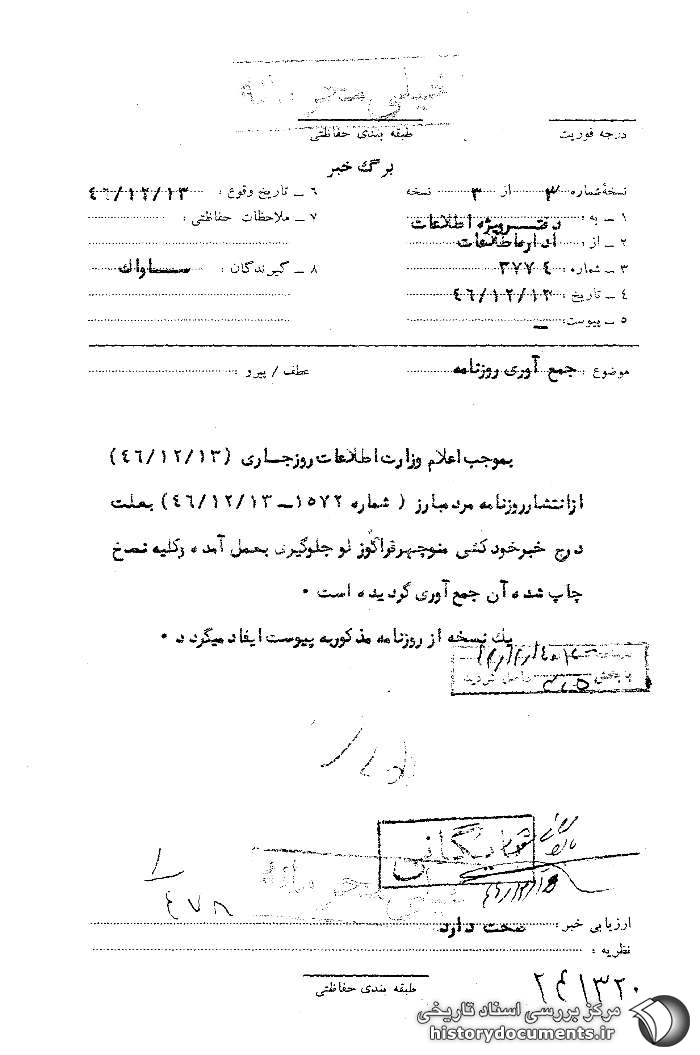 خیلی محرمانه
درجه فوریت
طبقه بندی حفاظتی
برگ خبر
نسخهٔ شماره ۳ از ۳ نسخه
۱ - به : دفتر ویژه اطلاعات
۲ - از : اداره اطلاعات
۳ - شماره : ۳۷۷۴
۴ - تاریخ : ۴۶/۱۲/۱۳
۵ - پیوست: -
۶ - تاریخ وقوع : ۴۶/۱۲/۱۳
۷ - ملاحظات حفاظتی :
۸ - گیرندگان : ساواك
موضوع : جمع آوری روزنامه
عطف / پیرو :
بموجب اعلام وزارت اطلاعات روزجاری (۴۶/۱۲/۱۳)
ازانتشارروزنامه مردمبارز ( شماره ۱۵۷۲-۴۶/۱۲/۱۳) بعلت
درج خبرخودکشی منوچهرقراگوز لو جلوگیری بعمل آمده وکلیه نسخ
چاپ شده آن جمع آوری گردیده است .
یك نسخه از روزنامه مذکوربه پیوست ایفاد میگردد .
بایگانی
خیلی محرمانه
۱
۴۷۸
ارزیابی خبر : صحت دارد
نظریه :
طبقه بندی حفاظتی
مرکز بررسی اسناد تاریخی
historydocuments.ir